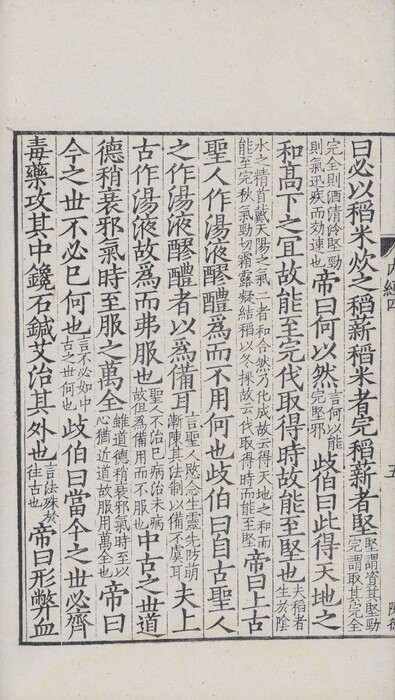 曰必以稻米炊之稻薪稻米者完稻薪者堅堅謂資其堅勁完謂取其完全
完全則酒清冷堅勁則氣迅疾而効速也帝曰何以然言何以能完堅邪歧伯曰此得天地之
和高下之宜故能至完伐取得時故能至堅也夫稻者生於陰
水之精首戴天陽之氣二者和合然乃化成故云得天地之和而能至完秋氣勁切霜露凝結稻以冬採故云伐取得時而能至堅帝曰上古
聖人作湯液醪醴爲而不用何也歧伯曰自古聖人
之作湯液醪醴者以爲備耳言聖人愍念生靈先防萌漸陳其法制以備不虞耳夫上
古作湯液故爲而弗服也聖人不治已病治未病故但爲備用而不服也中古之世道
德稍衰邪氣時至服之萬全雖道德稍衰邪氣時至以心猶近道故服用萬全也帝曰
今之世不必已何也言不必如中古之世何也歧伯曰當今之世必齊
毒藥攻其中鑱石鍼艾治其外也言法殊於往古也帝曰形弊血